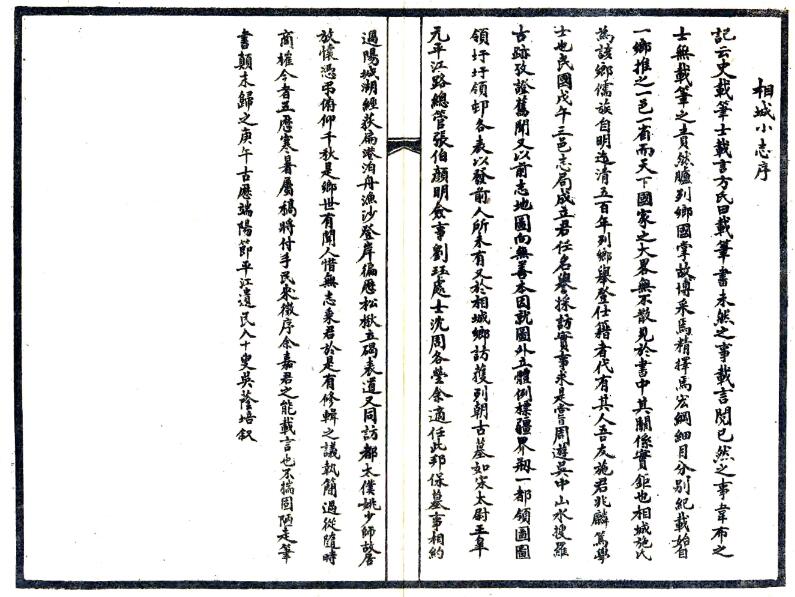 相城小志序
記云史載筆士載言方氏曰載筆書未然之事載言閱已然之事韋布之
士無載筆之責然臚列鄉國掌故博采焉精擇焉宏綱細目分別紀載始自
一鄉推之一邑一省而天下國家之大畧無不散見於書中其關係實鉅也相城施氏
為該鄉儒族自明迄清五百年列鄉舉登仕籍者代有其人吾友施君兆麟篤學
士也民國戊午三邑志局成立君任名譽採訪實事求是嘗周遊吳中山水搜羅
古跡攷證舊聞又以前志地圖向無善本因就圖外立體例標疆界剏一都領圖圖
領圩圩領邨各表以發前人所未有又於相城鄉訪獲列朝古墓如宋太尉王皐
元平江路總管張伯顏明僉事劉珏處士沈周各塋余適任此邦保墓事相約
過陽城湖經荻扁港泊舟漁沙登岸徧歷松楸立碣表道又同訪都太僕姚少師故居
放懷憑弔俯仰千秋是鄉世有聞人惜無志乘君於是有修輯之議執簡過從隨時
商榷今者五歷寒暑屬稿將付手民來徵序余嘉君之能載言也不揣固陋走筆
書顛末歸之庚午古歷端陽節平江遺民八十叟吳蔭培敘